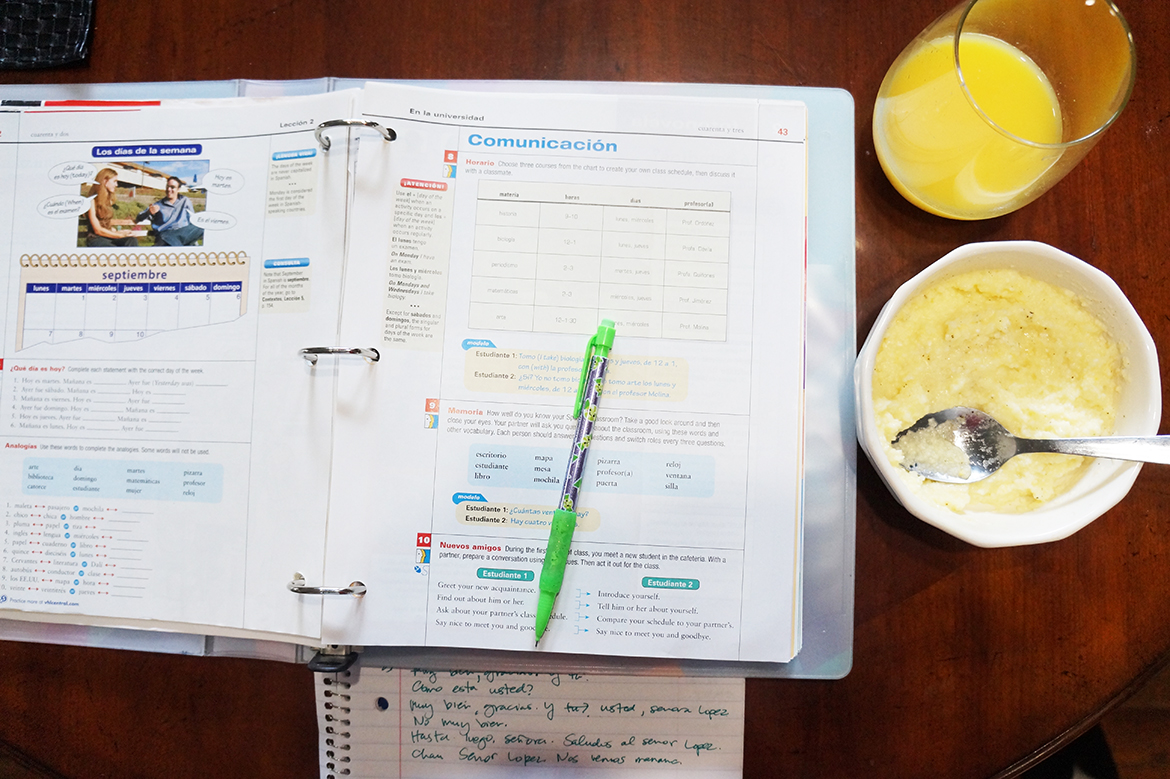 cuarenta y dos
Lección 2
Los días de la semana
¿Qué día
es hoy (today)?
Hoy es
martes.
¿Cuándo (When)
es el examen?
Es el viernes.
septiembre
lunes martes miércoles jueves viernes sábado domingo
1 2 3 4 5 6
7 8 9 10
The days of the week
are never capitalized
in Spanish.
Monday is considered
the first day of the
week in Spanish-
speaking countries.
CONSULTA
Note that September
in Spanish is septiembre.
For all of the months
of the year, go to
Contextos, Lección 5,
¿Qué día es hoy? Complete each statement with the correct day of the week.
1. Hoy es martes. Mañana es Ayer fue (Yesterday was)
2. Ayer fue sábado. Mañana es Hoy es
3. Mañana es viernes. Hoy es Ayer fue
4. Ayer fue domingo. Hoy es Mañana es
5. Hoy es jueves. Ayer fue Mañana es
6. Mañana es lunes. Hoy es Ayer fue
Analogías Use these words to complete the analogies. Some words will not be used.
arte día martes pizarra
biblioteca domingo matemáticas profesor
catorce estudiante mujer reloj
1. maleta pasajero mochila
2. chico chica hombre
3. pluma papel tiza
4. inglés lengua miércoles
5. papel cuaderno libro
6. quince dieciséis lunes
7. Cervantes literatura Dalí
8. autobús conductor clase
9. los EE.UU. mapa hora
10. veinte veintitrés jueves
Practice more at vhlcentral.com
En la universidad
cuarenta y tres 43
Comunicación
8 Horario Choose three courses from the chart to create your own class schedule, then discuss it
with a classmate.
¡ATENCIÓN!
Use el + [day of the
week] when an
activity occurs on a
specific day and los +
[day of the week]
when an activity
occurs regularly.
El lunes tengo
un examen.
On Monday I have
an exam.
Los lunes y miércoles
tomo biología.
On Mondays and
Wednesdays I take
biology.
Except for sábados and
domingos, the singular
and plural forms for
days of the week are
the same.
materia horas días profesor(a)
historia 9-10 lunes, miércoles Prof. Ordóñez
biología 12-1 lunes, jueves Profa. Dávila
periodismo 2-3 martes, jueves Profa. Quiñones
matemáticas 2-3 miércoles, jueves Prof. Jiménez
arte 12-1:30 lunes, miércoles Prof. Molina
modelo
Estudiante 1: Tomo (I take) biología y jueves, de 12 a 1,
con (with) la profesora
Estudiante 2: ¿Sí? Yo no tomo tomo arte los lunes y
miércoles, de 12 a con el profesor Molina.
9 Memoria How well do you know your classroom? Take a good look around and then
close your eyes. Your partner will ask you about the classroom, using these words and
other vocabulary. Each person should answer and switch roles every three questions.
escritorio mapa pizarra reloj
estudiante mesa profesor(a) ventana
libro mochila puerta silla
modelo
Estudiante 1: ¿Cuántas hay?
Estudiante 2: Hay cuatro
10 Nuevos amigos During the first class, you meet a new student in the cafeteria. With a
partner, prepare a conversation using Then act it out for the class.
Estudiante 1 Estudiante 2
Greet your new acquaintance. Introduce yourself.
Find out about him or her. Tell him or her about yourself.
Ask about your partner's class Compare your schedule to your partner's.
Say nice to meet you and Say nice to meet you and goodbye.
Como esta usted?
Muy bien, gracias. Y tu? usted, senora Lopez
No muy bien.
Hasta luego, señora. Saludos al senor Lopez.
chau Senor Lopez Nos vemos manana.